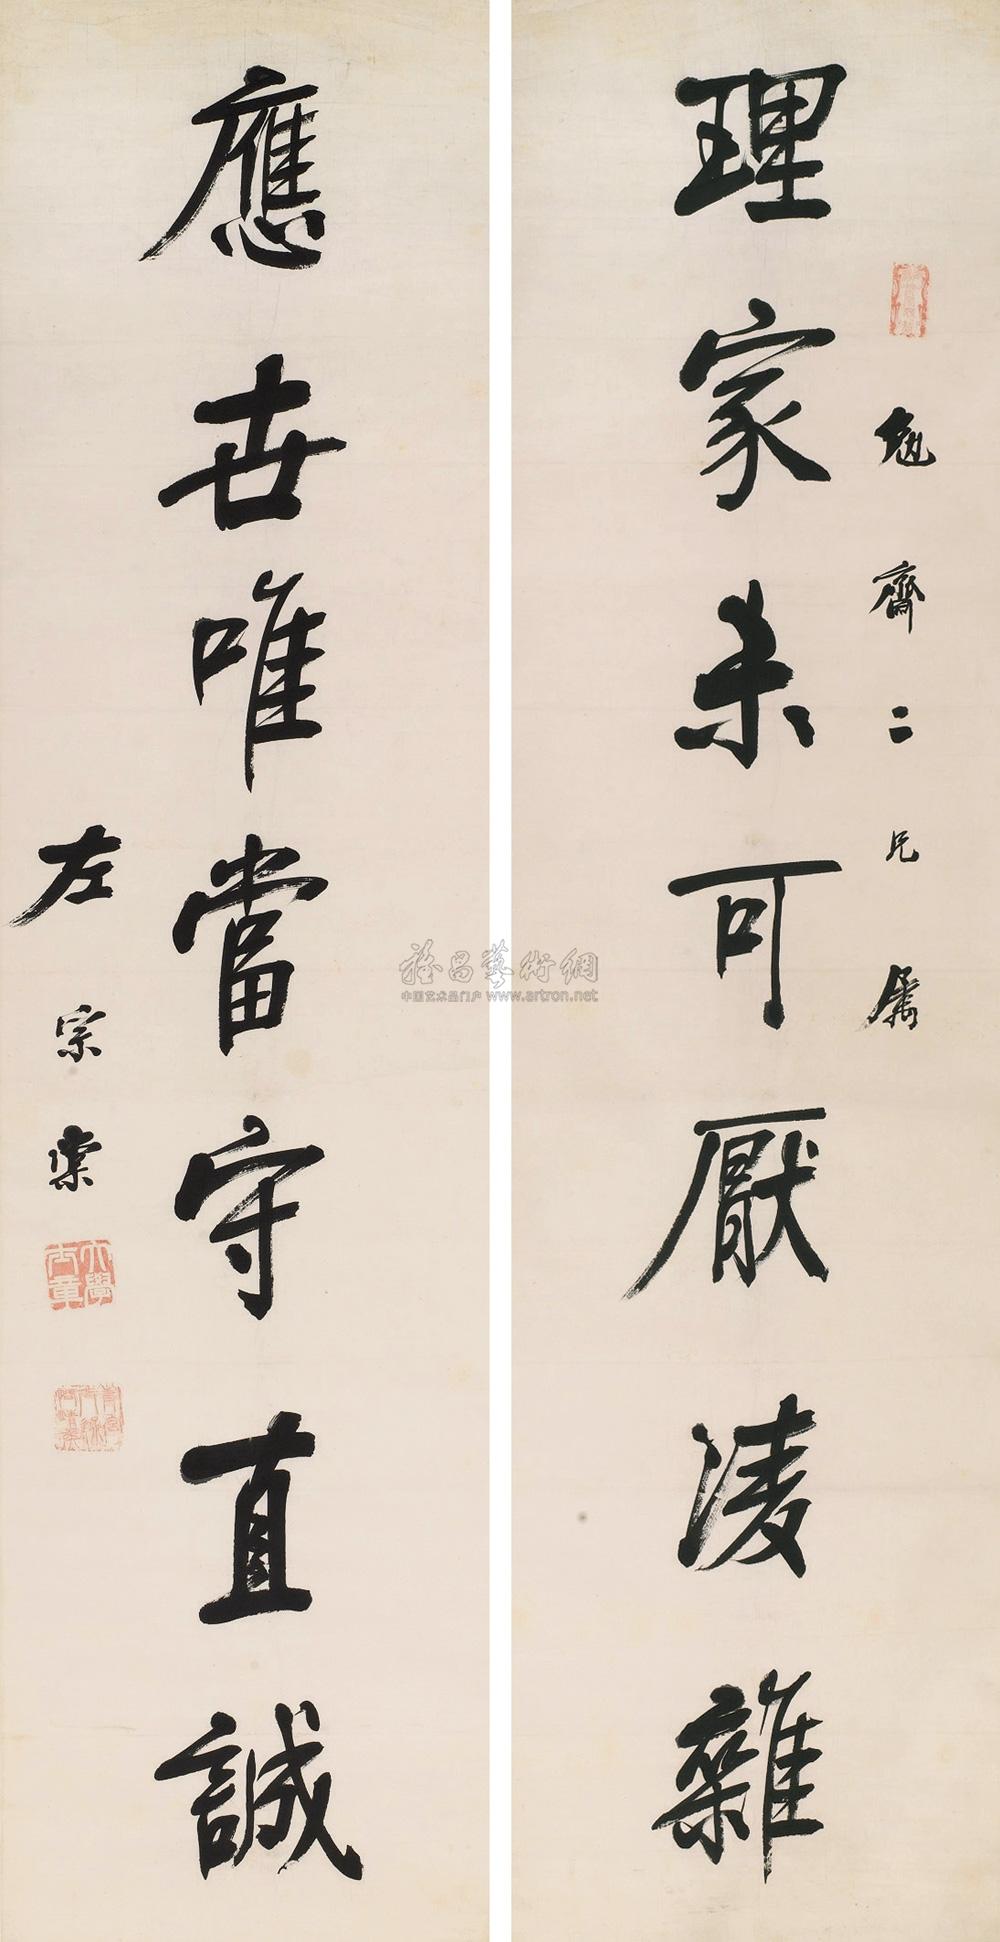 勉齋二兄屬
理家未可厭凌雜
應世唯當守直誠
左宗棠
大學士章
雅昌藝術網
中国艺术品门户 www.artron.net